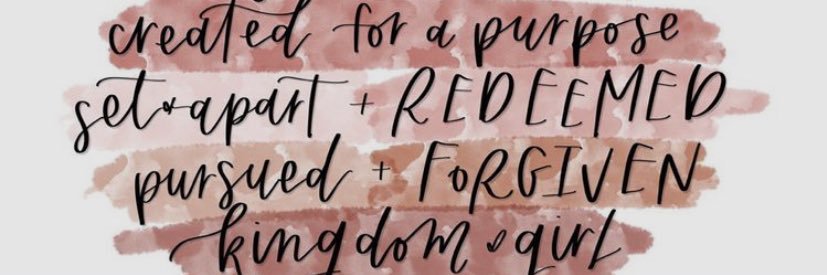 created for a purpose
set apart + REDEEMED
pursued + FORGIVEN
kingdom girl